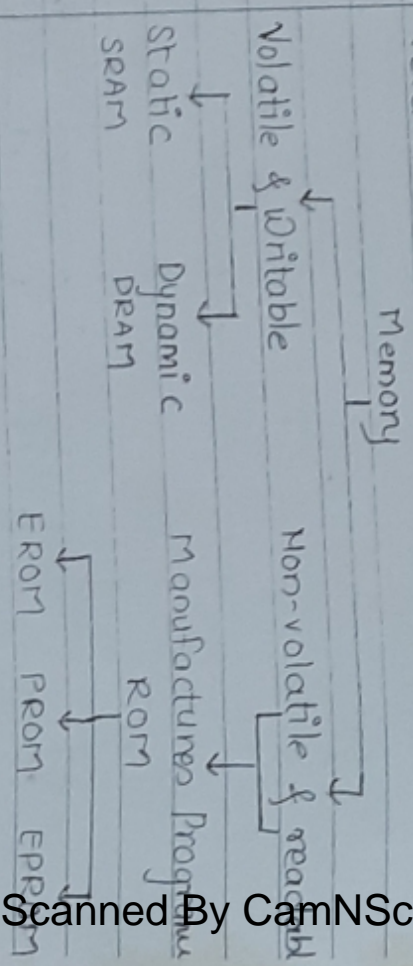 Memory
Volatile & Writable Non-volatile & readabl
Static Dynamic Manufactures Programm
SRAM DRAM ROM
EROM PROM EPROM
Scanned By CamNSc